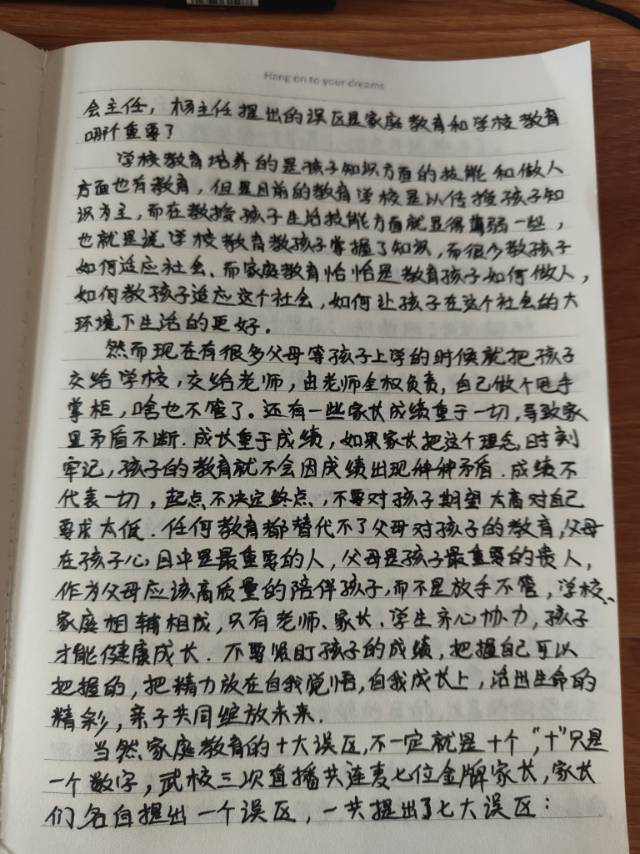 Hang on to your dreams
会主任，杨主任提出的误区是家庭教育和学校教育
哪个重要？
学校教育培养的是孩子知识方面的技能和做人
方面也有教育，但是目前的教育学校是以传授孩子知
识为主，而在教授孩子生活技能方面就显得薄弱一些，
也就是说学校教育教孩子掌握了知识，而很少教孩子
如何适应社会、而家庭教育恰恰是教育孩子如何做人，
如何教孩子适应这个社会，如何让孩子在这个社会的大
环境下生活的更好。
然而现在有很多父母等孩子上学的时候就把孩子
交给学校，交给老师，由老师全权负责，自己做个甩手
掌柜，啥也不管了。还有一些家长成绩重于一切，导致家
里矛盾不断．成长重于成绩，如果家长把这个理念时刻
牢记，孩子的教育就不会因成绩出现种种矛盾．成绩不
代表一切，起点不决定终点、不要对孩子期望太高对自己
要求太低．任何教育都替代不了父母对孩子的教育，父母
在孩子心目中是最重要的人，父母是孩子最重要的贵人，
作为父母应该高质量的陪伴孩子，而不是放手不管，学校、
家庭相辅相成，只有老师、家长、学生齐心协力，孩子
才能健康成长．不要紧盯孩子的成绩，把握自己可以
把握的，把精力放在自我觉悟，自我成长上，活出生命的
精彩，亲子共同绽放未来．
当然家庭教育的十大误区，不一定就是十个，“十”只是
一个数字，武校三次直播共连麦七位金牌家长，家长
们各自提出一个误区，一共提出了七大误区：